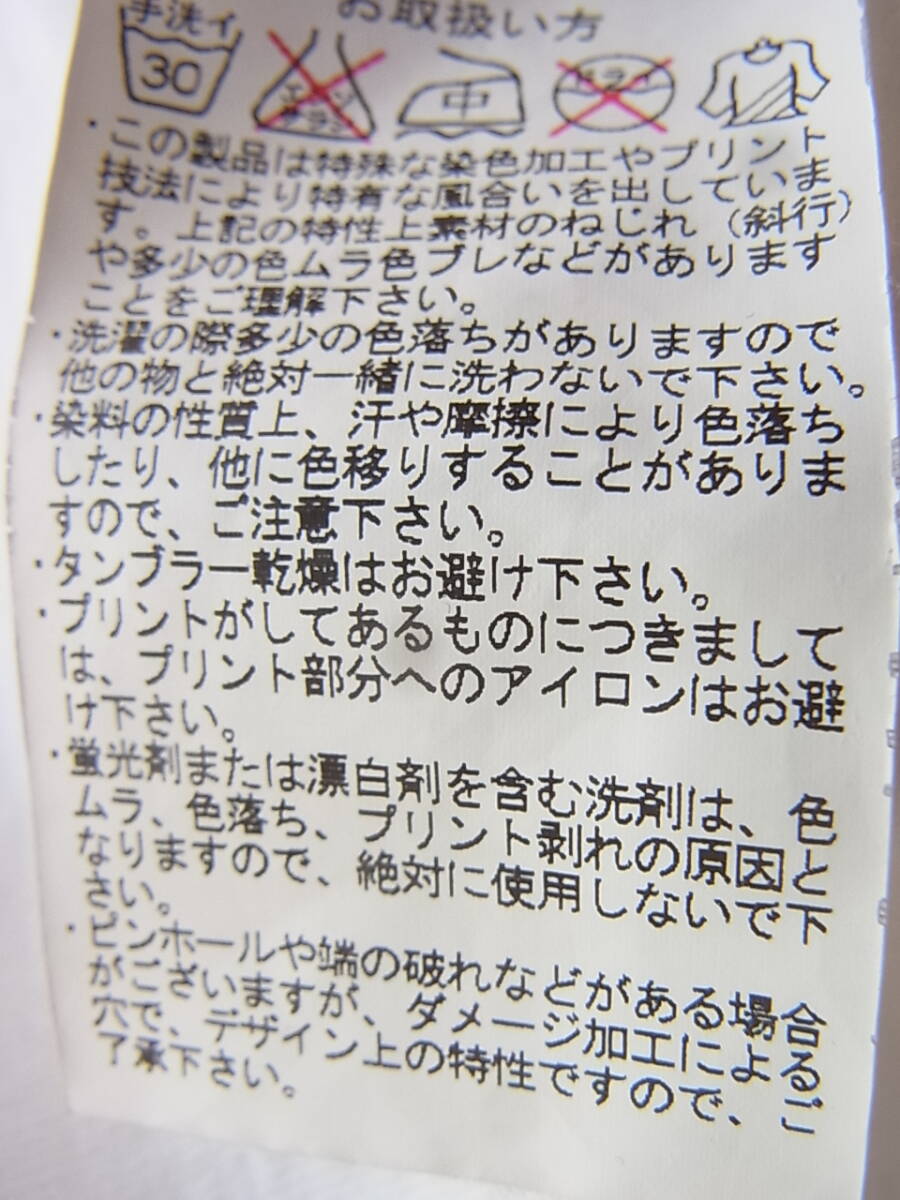 お取扱い方
手洗イ
30
エンソ
サラシ
中
ドライ
・この製品は特殊な染色加工やプリント
技法により特有な風合いを出していま
す。上記の特性上素材のねじれ（斜行）
や多少の色ムラ色ブレなどがあります
ことをご理解下さい。
・洗濯の際多少の色落ちがありますので
他の物と絶対一緒に洗わないで下さい。
・染料の性質上、汗や摩擦により色落ち
したり、他に色移りすることがありま
すので、ご注意下さい。
・タンブラー乾燥はお避け下さい。
・プリントがしてあるものにつきまして
は、プリント部分へのアイロンはお避
け下さい。
・蛍光剤または漂白剤を含む洗剤は、色
ムラ、色落ち、プリント剥れの原因と
なりますので、絶対に使用しないで下
さい。
・ピンホールや端の破れなどがある場合
がございますが、ダメージ加工によるご
穴で、デザイン上の特性ですので、
了承下さい。